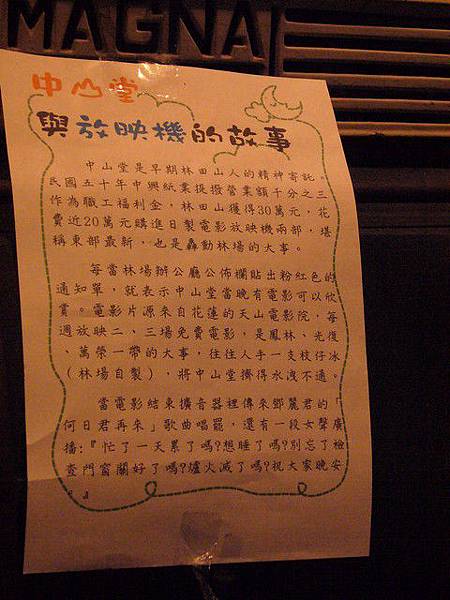 MAGNA
中山堂
與放映機的故事
中山堂是早期林田山人的精神寄託。
民國五十年中興紙業提撥營業額千分之三
作為職工福利金，林田山獲得30萬元，花
費近20萬元購進日製電影放映機兩部，堪
稱東部最新，也是轟動林場的大事。
每當林場辦公廳公佈欄貼出粉紅色的
通知單，就表示中山堂當晚有電影可以欣
賞。電影片源來自花蓮的天山電影院，每
週放映二、三場免費電影，是鳳林、光復
、萬榮一帶的大事，往往人手一支枝仔冰
（林場自製），將中山堂擠得水洩不通。
當電影結束擴音器裡傳來鄧麗君的「
何日君再來」歌曲唱罷，還有一段女聲廣
播:『忙了一天累了嗎?想睡了嗎?別忘了檢
查門窗關好了嗎?爐火滅了嗎?祝大家晚安
。』